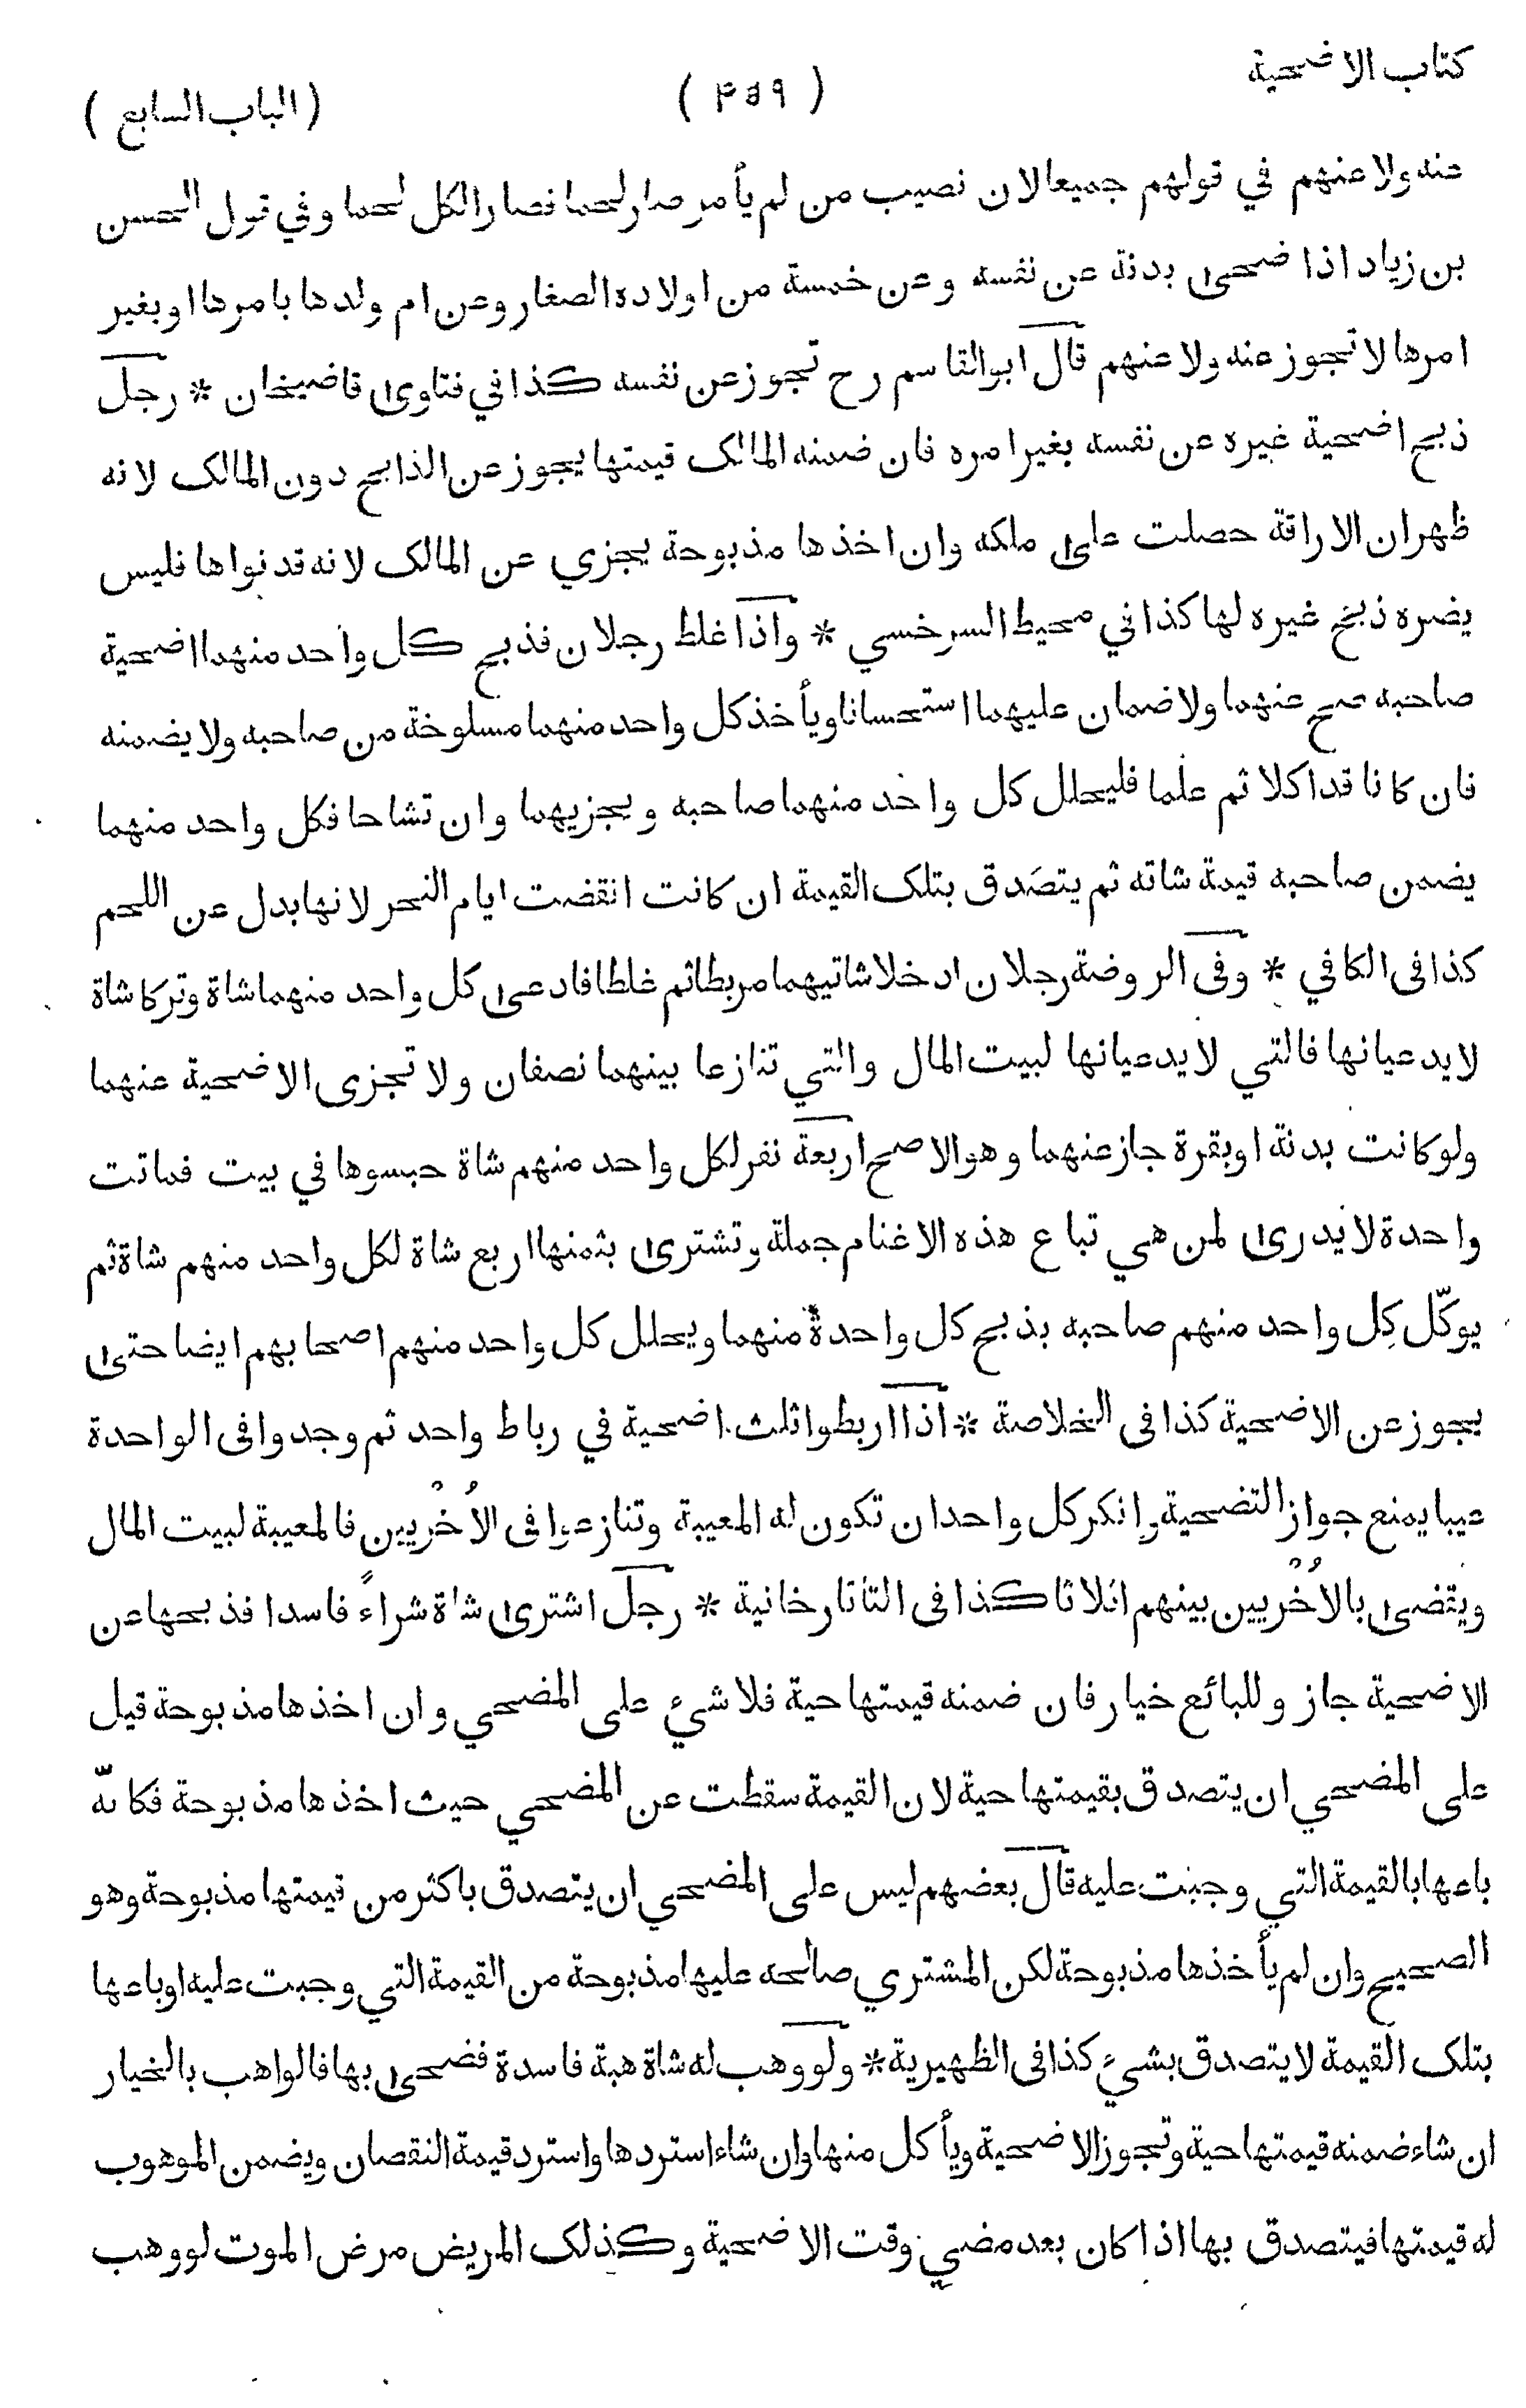 كتاب الاضحية
( ٤٥٩ )
( الباب السابع )
عنه ولا عنهم في قولهم جميعا لان نصيب من لم يأمر صار لحما فصار الكل لحما وفي قول الحسن
بن زياد اذا ضحى بدنة عن نفسه وعن خمسة من اولاده الصغار وعن ام ولدها بامرها او بغير
امرها لا تجوز عنه ولا عنهم قال ابوالقاسم رح تجوز عن نفسه كذا في فتاوى قاضيخان * رجل
ذبح اضحية غيره عن نفسه بغير امره فان ضمنه المالك قيمتها يجوز عن الذابح دون المالك لانه
ظهر ان الاراقة حصلت على ملكه وان اخذها مذبوحة يجزي عن المالك لانه قد نواها فليس
يضره ذبح غيره لها كذا في محيط السرخسي * واذا غلط رجلان فذبح كل واحد منهما اضحية
صاحبه صح عنهما ولا ضمان عليهما استحسانا ويأخذ كل واحد منهما مسلوخة من صاحبه ولا يضمنه
فان كانا قد اكلا ثم علما فليحلل كل واحد منهما صاحبه ويجزيهما وان تشاحا فكل واحد منهما
يضمن صاحبه قيمة شاته ثم يتصدق بتلك القيمة ان كانت انقضت ايام النحر لانها بدل عن اللحم
كذا فى الكافي * وفى الروضة رجلان ادخلا شاتيهما مربطا ثم غلطا فادعى كل واحد منهما شاة وتركا شاة
لا يدعيانها فالتي لا يدعيانها لبيت المال والتي تنازعا بينهما نصفان ولا تجزى الاضحية عنهما
ولو كانت بدنة او بقرة جاز عنهما وهو الاصح اربعة نفر لكل واحد منهم شاة حبسوها في بيت فماتت
واحدة لا يدرى لمن هي تباع هذه الاغنام جملة وتشترى بثمنها اربع شاة لكل واحد منهم شاة ثم
يوكّل كل واحد منهم صاحبه بذبح كل واحدة منهما ويحلل كل واحد منهم اصحابهم ايضا حتى
يجوز عن الاضحية كذا فى الخلاصة * اذا اربطوا ثلث اضحية في رباط واحد ثم وجدوا فى الواحدة
عيبا يمنع جواز التضحية وانكر كل واحد ان تكون له المعيبة وتنازعوا فى الأُخْريين فالمعيبة لبيت المال
ويقضى بالأُخْريين بينهم اثلاثا كذا فى التاتارخانية * رجل اشترى شاة شراءً فاسدا فذبحها عن
الاضحية جاز وللبائع خيار فان ضمنه قيمتها حية فلا شيء على المضحي وان اخذها مذبوحة قيل
على المضحي ان يتصدق بقيمتها حية لان القيمة سقطت عن المضحي حيث اخذها مذبوحة فكانّه
باعها بالقيمة التي وجبت عليه قال بعضهم ليس على المضحي ان يتصدق باكثر من قيمتها مذبوحة وهو
الصحيح وان لم يأخذها مذبوحة لكن المشتري صالحه عليها مذبوحة من القيمة التي وجبت عليه او باعها
بتلك القيمة لا يتصدق بشيء كذا فى الظهيرية * ولو وهب له شاة هبة فاسدة فضحى بها فالواهب بالخيار
ان شاء ضمنه قيمتها حية وتجوز الاضحية ويأكل منها وان شاء استردها واسترد قيمة النقصان ويضمن الموهوب
له قيمتها فيتصدق بها اذا كان بعد مضي وقت الاضحية وكذلك المريض مرض الموت لو وهب